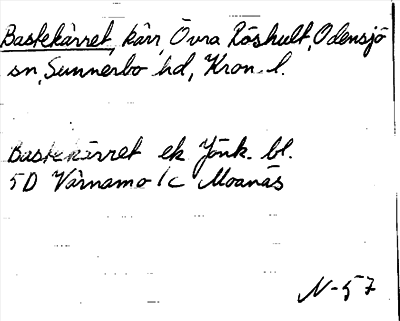 Bastekärret, kärr, Övra Röshult, Odensjö
sn, Sunnerbo hd, Kron. l.
Bastekärret ek Jönk. bl.
5D Värnamo 1c Moanäs
N-57